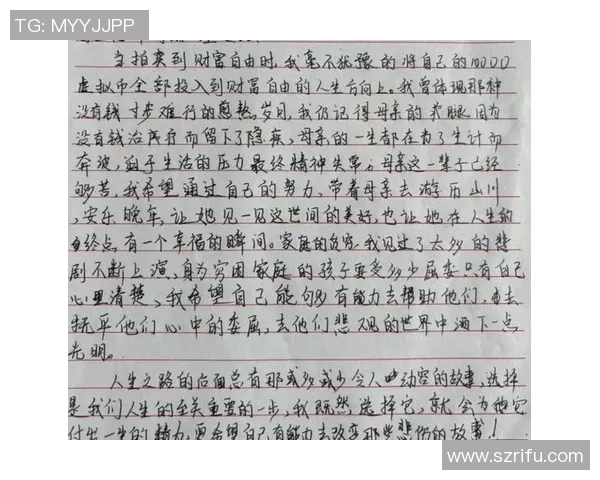 TG: MYYJJPP
当拍卖到财富自由时,我毫不犹豫的将自己的10000
虚拟币全部投入到财富自由的人生方向上。我曾体现那种
没有钱寸步难行的煎熬岁月,我仍记得母亲的 腿因为
没有钱治疗而留下了隐疾、母亲的一生都在为了生计而
奔波,迫于生活的压力最终精神失常。母亲这一辈子已经
够苦,我希望通过自己的努力,带着母亲去游历山川
,安乐晚年,让她见一见这世间的美好,也让她在人生的
终点有一个幸福的瞬间。家庭的贫穷,我见过了太多的悲
剧不断上演,身为穷困家庭的孩子要受多少屈委只有自己
心里清楚、我希望自己能够有能力去帮助他们,去
抚平他们心中的委屈,去他们悲观的世界中洒下一点
光明。
人生之路的后面总有那或多或少令人动容的故事,选择
是我们人生的至关重要的一步,我既然选择它,就会为他
付出一生的精力,更希望自己有能力去改变那些悲伤的故事!
www.szrifu.com